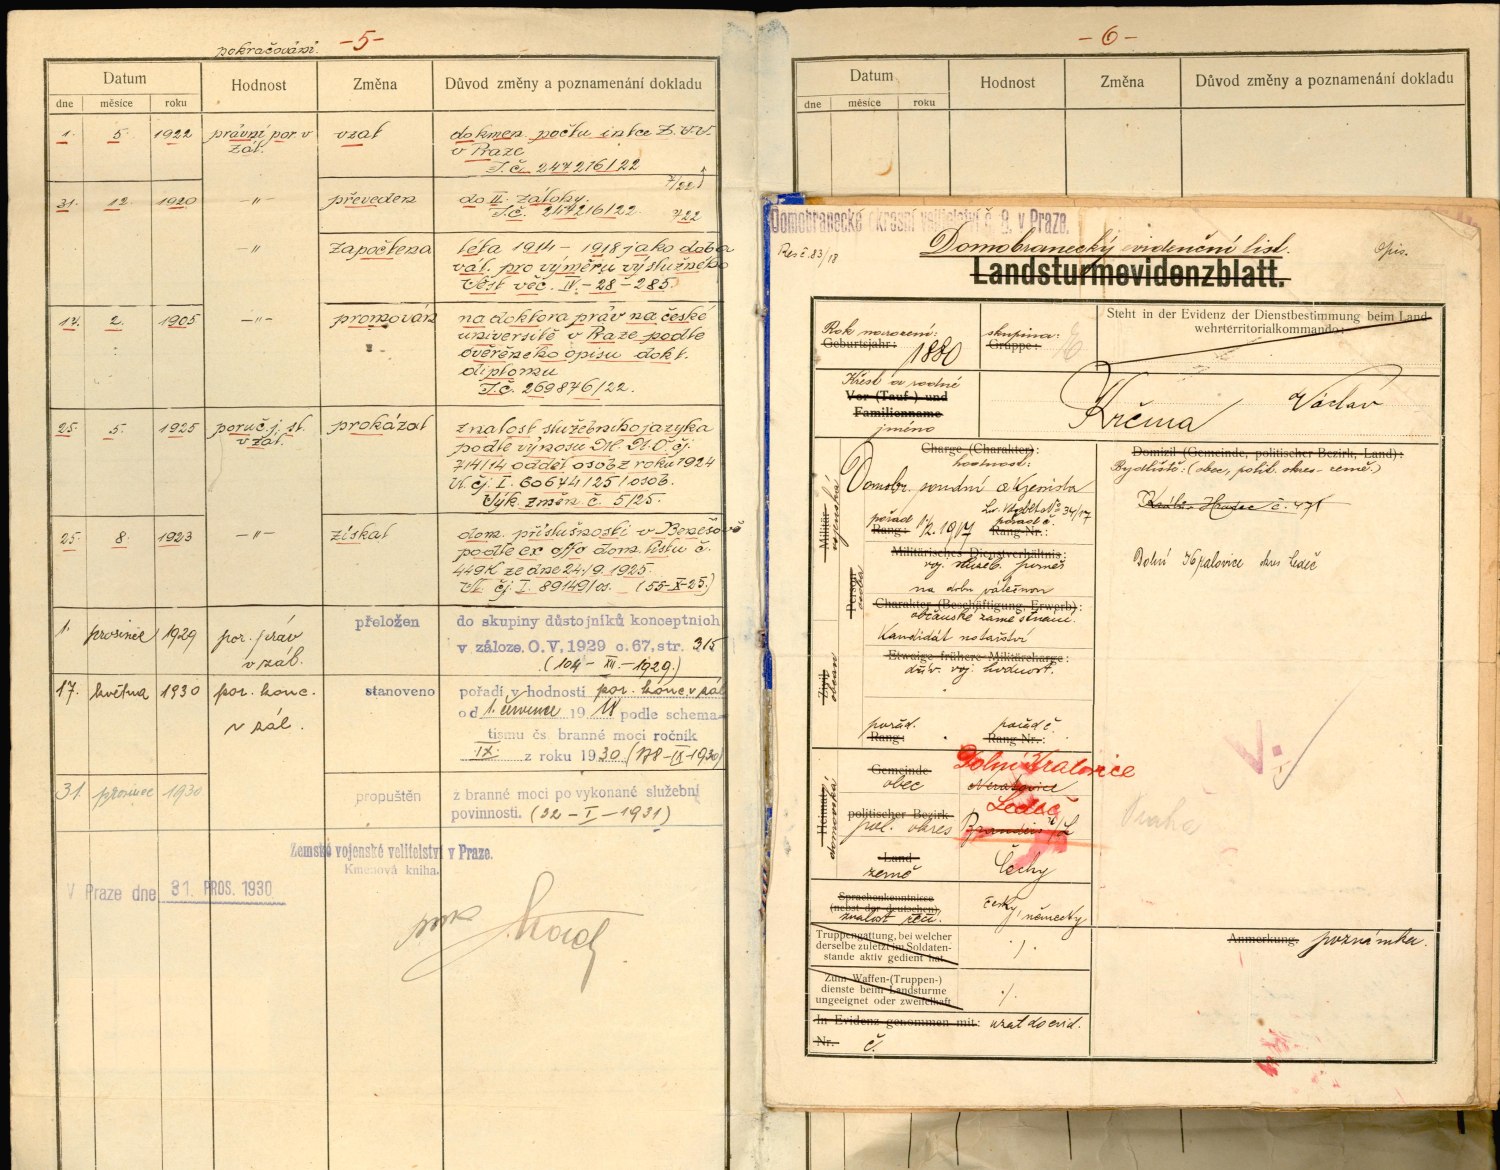 pokračování. -5-
Datum
Hodnost
Změna
Důvod změny a poznamenání dokladu
dne
měsíce
roku
1. 5. 1922 právní por. v zál. vzat
do kmen. počtu intce Z.V.V.
v Praze
T.č. 247216/22
7/22
31. 12. 1920 -"- převeden
do II. zálohy.
T.č. 247216/22. 7/22
-"- započtena
léta 1914 - 1918 jako doba
vál. pro výměru výslužného
Věst. věc. IV. - 28 - 285.
17. 2. 1905 -"- promován
na doktora práv na české
universitě v Praze podle
ověřeného opisu dokt.
diplomu
T.č. 269876/22.
25. 5. 1925 poruč. j. st. v zál. prokázal
znalost služebního jazyka
podle výnosu M.N.O. čj.
714/14 odděl. osob z roku 1924
čj. I. 60674/25/osob.
Výk. změn č. 5/25.
25. 8. 1923 -"- získal
dom. příslušnosti v Benešově
podle ex offo dom. listu č.
449K ze dne 24./9. 1925.
čj. I. 89149/os. (55-X-25.)
1. prosince 1929 por. práv v záb. přeložen
do skupiny důstojníků konceptních
v záloze. O.V. 1929 č. 67, str. 315
(104 - XII. - 1929.)
17. května 1930 por. konc. v zál. stanoveno
pořadí v hodnosti por. konc. v zál
od 1. července 19 18 podle schema-
tismu čs branné moci ročník
IX. z roku 1930 (178-IX-1930)
31. prosince 1930 propuštěn
z branné moci po vykonané služební
povinnosti. (32 - I - 1931)
Zemské vojenské velitelství v Praze.
Kmenová kniha.
V Praze dne 31. PROS. 1930
-6-
Datum
Hodnost
Změna
Důvod změny a poznamenání dokladu
dne
měsíce
roku
Domobranecké okresní velitelství č. 8. v Praze.
Res č. 83/18
Domobranecký evidenční list.
Opis.
Landsturmevidenzblatt.
Rok narození:
Geburtsjahr:
1880
skupina:
Gruppe:
Steht in der Evidenz der Dienstbestimmung beim Land-
wehrterritorialkommando:
Křest. a rodné
Vor-(Tauf-) und
Familienname
jméno
Krčma Václav
Militär
vojenská
Person
osoba
Zivil
občan
Charge (Charakter):
hodnost:
Domobr. soudní akzesista
pořad
Rang: 1917
pořad. č.
Rang-Nr.:
Militärisches Dienstverhältnis:
voj. služeb. poměr
na dobu válečnou
Charakter (Beschäftigung, Erwerb):
občanské zaměstnání.
Kandidát notářství
Etwaige frühere Militärcharge:
dřív. voj. hodnost.
pořad.
Rang:
pořad č.
Rang-Nr.:
Domizil (Gemeinde, politischer Bezirk, Land):
Bydliště: (obec, polit. okres - země)
Hradec č. 471
Dolní Kralovice okres Ledeč
Heimats
domovská
Gemeinde
obec
Dolní Kralovice
Neratovice
politischer Bezirk
pol. okres
Ledeč
Brandeis
Land
země
Čechy
Praha
Sprachenkenntnisse
(nebst der deutschen)
znalost řečí.
česky, německy
Truppengattung, bei welcher
derselbe zuletzt im Soldaten-
stande aktiv gedient hat
./.
Zum Waffen-(Truppen-)
dienste beim Landsturme
ungeeignet oder zweifelhaft
./.
In Evidenz genommen mit: vzat do evid.
Nr. č.
Anmerkung. poznámka.